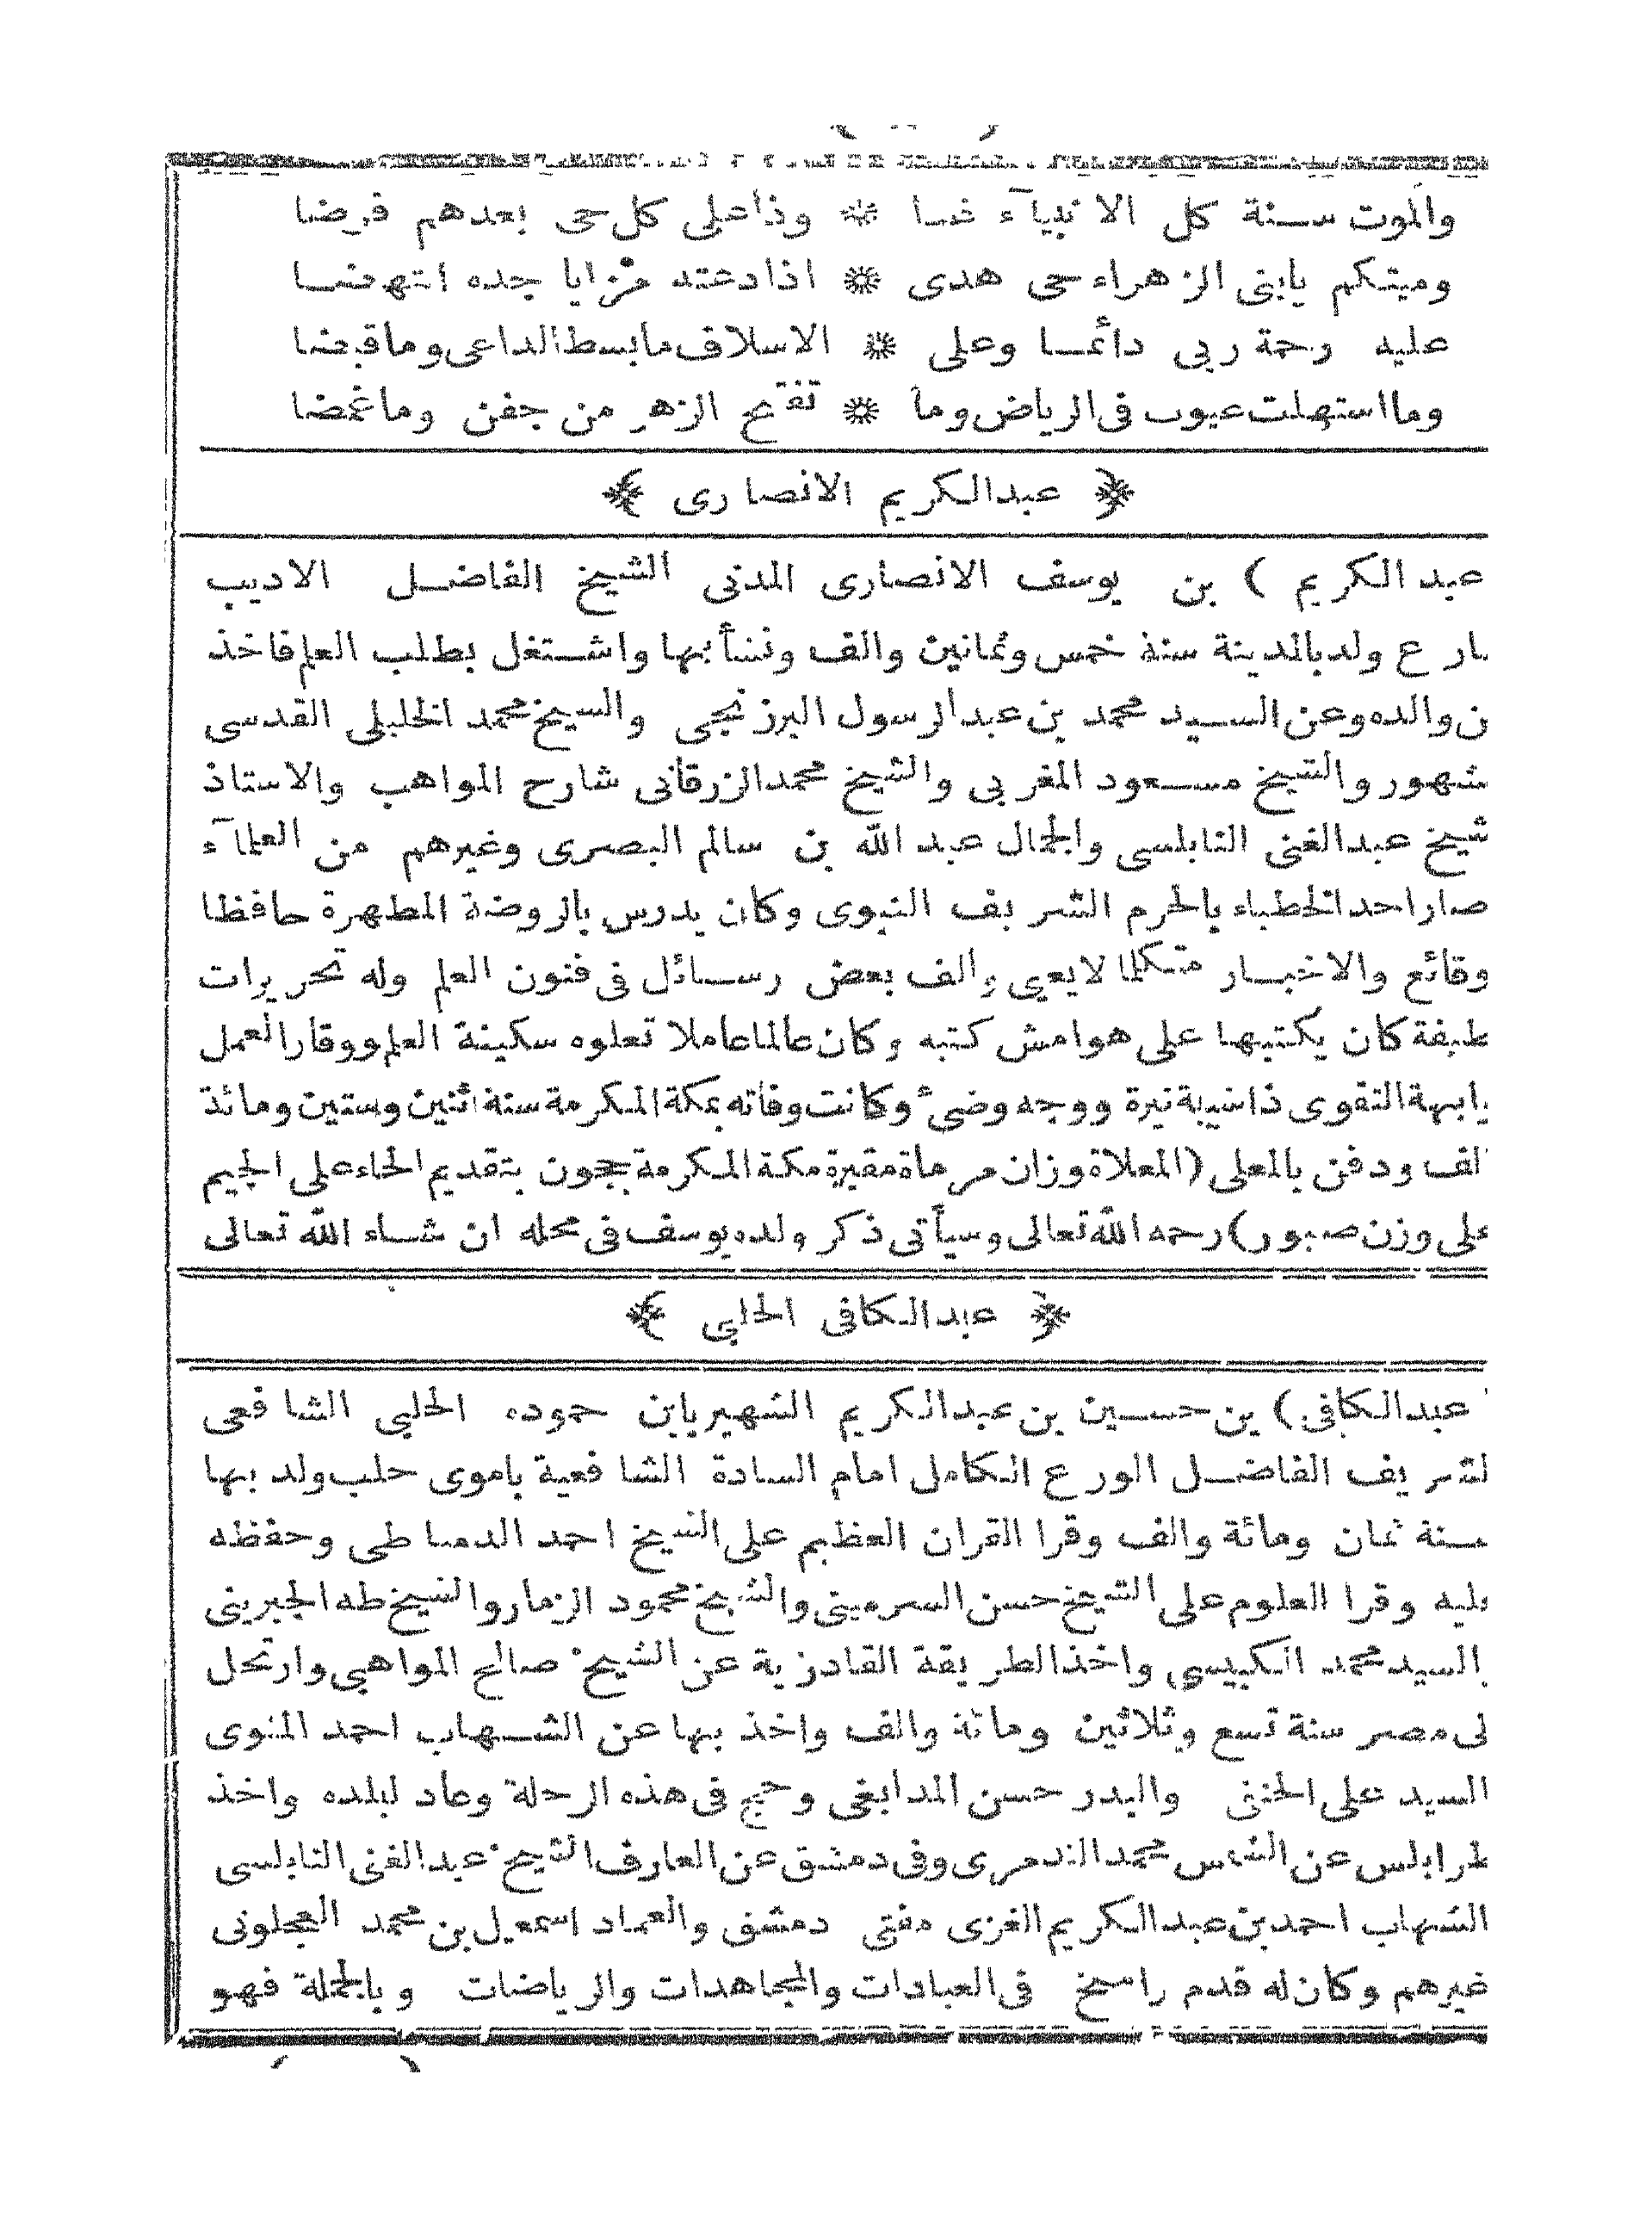 والموت سنة كل الانبيآء فما ❊ وذا على كل حى بعدهم فرضا
وميتكم يابنى الزهراء حى هدى ❊ اذا دعته مزايا جده انتهضا
عليه رحمة ربى دائما وعلى ❊ الاسلاف ما بسط الداعى وما قبضا
وما استهلت عيوب فى الرياض وما ❊ تفتح الزهر من جفن وما غمضا
﴿ عبدالكريم الانصارى ﴾
عبد الكريم ) بن يوسف الانصارى المدنى الشيخ الفاضل الاديب
ارع ولد بالمدينة سنة خمس وثمانين والف ونشأ بها واشتغل بطلب العلم فاخذ
ن والده وعن السيد محمد بن عبد الرسول البرزنجى والشيخ محمد الخليلى القدسى
شهور والشيخ مسعود المغربى والشيخ محمد الزرقانى شارح المواهب والاستاذ
شيخ عبد الغنى النابلسى والجمال عبد الله بن سالم البصرى وغيرهم من العلمآء
صار احد الخطباء بالحرم الشريف النبوى وكان يدرس بالروضة المطهرة حافظا
وقائع والاخبار متكلما لايعيى والف بعض رسائل فى فنون العلم وله تحريرات
طيفة كان يكتبها على هوامش كتبه وكان عالما عاملا تعلوه سكينة العلم ووقار العمل
ابهة التقوى ذا شيبة نيرة ووجه وضىء وكانت وفاته بمكة المكرمة سنة اثنين وستين ومائة
الف ودفن بالمعلى (المعلاة وزان مرماة مقبرة مكة المكرمة بحجون بتقديم الحاء على الجيم
على وزن صبور) رحمه الله تعالى وسيأتى ذكر ولده يوسف فى محله ان شاء الله تعالى
﴿ عبدالكافى الحلبى ﴾
عبدالكافى) بن حسين بن عبدالكريم الشهير بابن حموده الحلبى الشافعى
لشريف الفاضل الورع الكامل امام السادة الشافعية باموى حلب ولد بها
سنة ثمان ومائة والف وقرا القران العظيم على الشيخ احمد الدمياطى وحفظه
ليه وقرا العلوم على الشيخ حسن السرمينى والشيخ محمود الزمار والشيخ طه الجبرينى
السيد محمد الكبيسى واخذ الطريقة القادرية عن الشيخ صالح المواهبى وارتحل
لى مصر سنة تسع وثلاثين ومائة والف واخذ بها عن الشهاب احمد المنوى
السيد على الحنفى والبدر حسن المدابغى وحج فى هذه الرحلة وعاد لبلده واخذ
طرابلس عن الشمس محمد التدمرى وفى دمشق عن العارف الشيخ عبد الغنى النابلسى
الشهاب احمد بن عبد الكريم الغزى مفتى دمشق والعماد اسمعيل بن محمد العجلونى
غيرهم وكان له قدم راسخ فى العبادات والمجاهدات والرياضات وبالجملة فهو